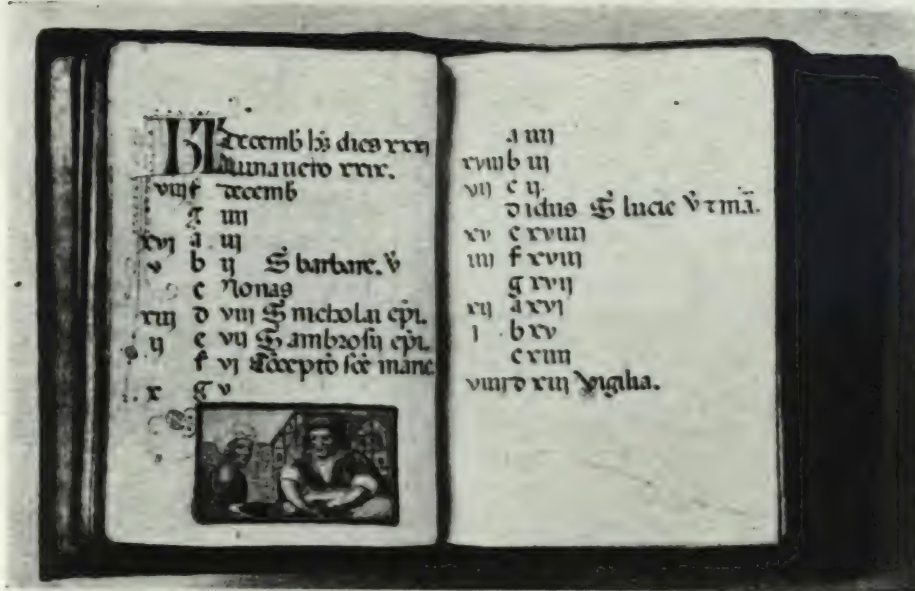 KL Decemb hs dies xxxj
Luna uero xxix.
viiij f decemb
g iiij
xvj a iij
v b ij S barbare. v
c Nonas
xiij d viij S nicholai epi.
ij e vij S ambrosij epi.
f vj Cōcepto sce marie
x g v
a iiij
xviij b iij
vij c ij
d idus S lucie v z mā.
xv e xviiij
iiij f xviij
g xvij
xij a xvj
j b xv
c xiiij
viiij d xiij Vigilia.